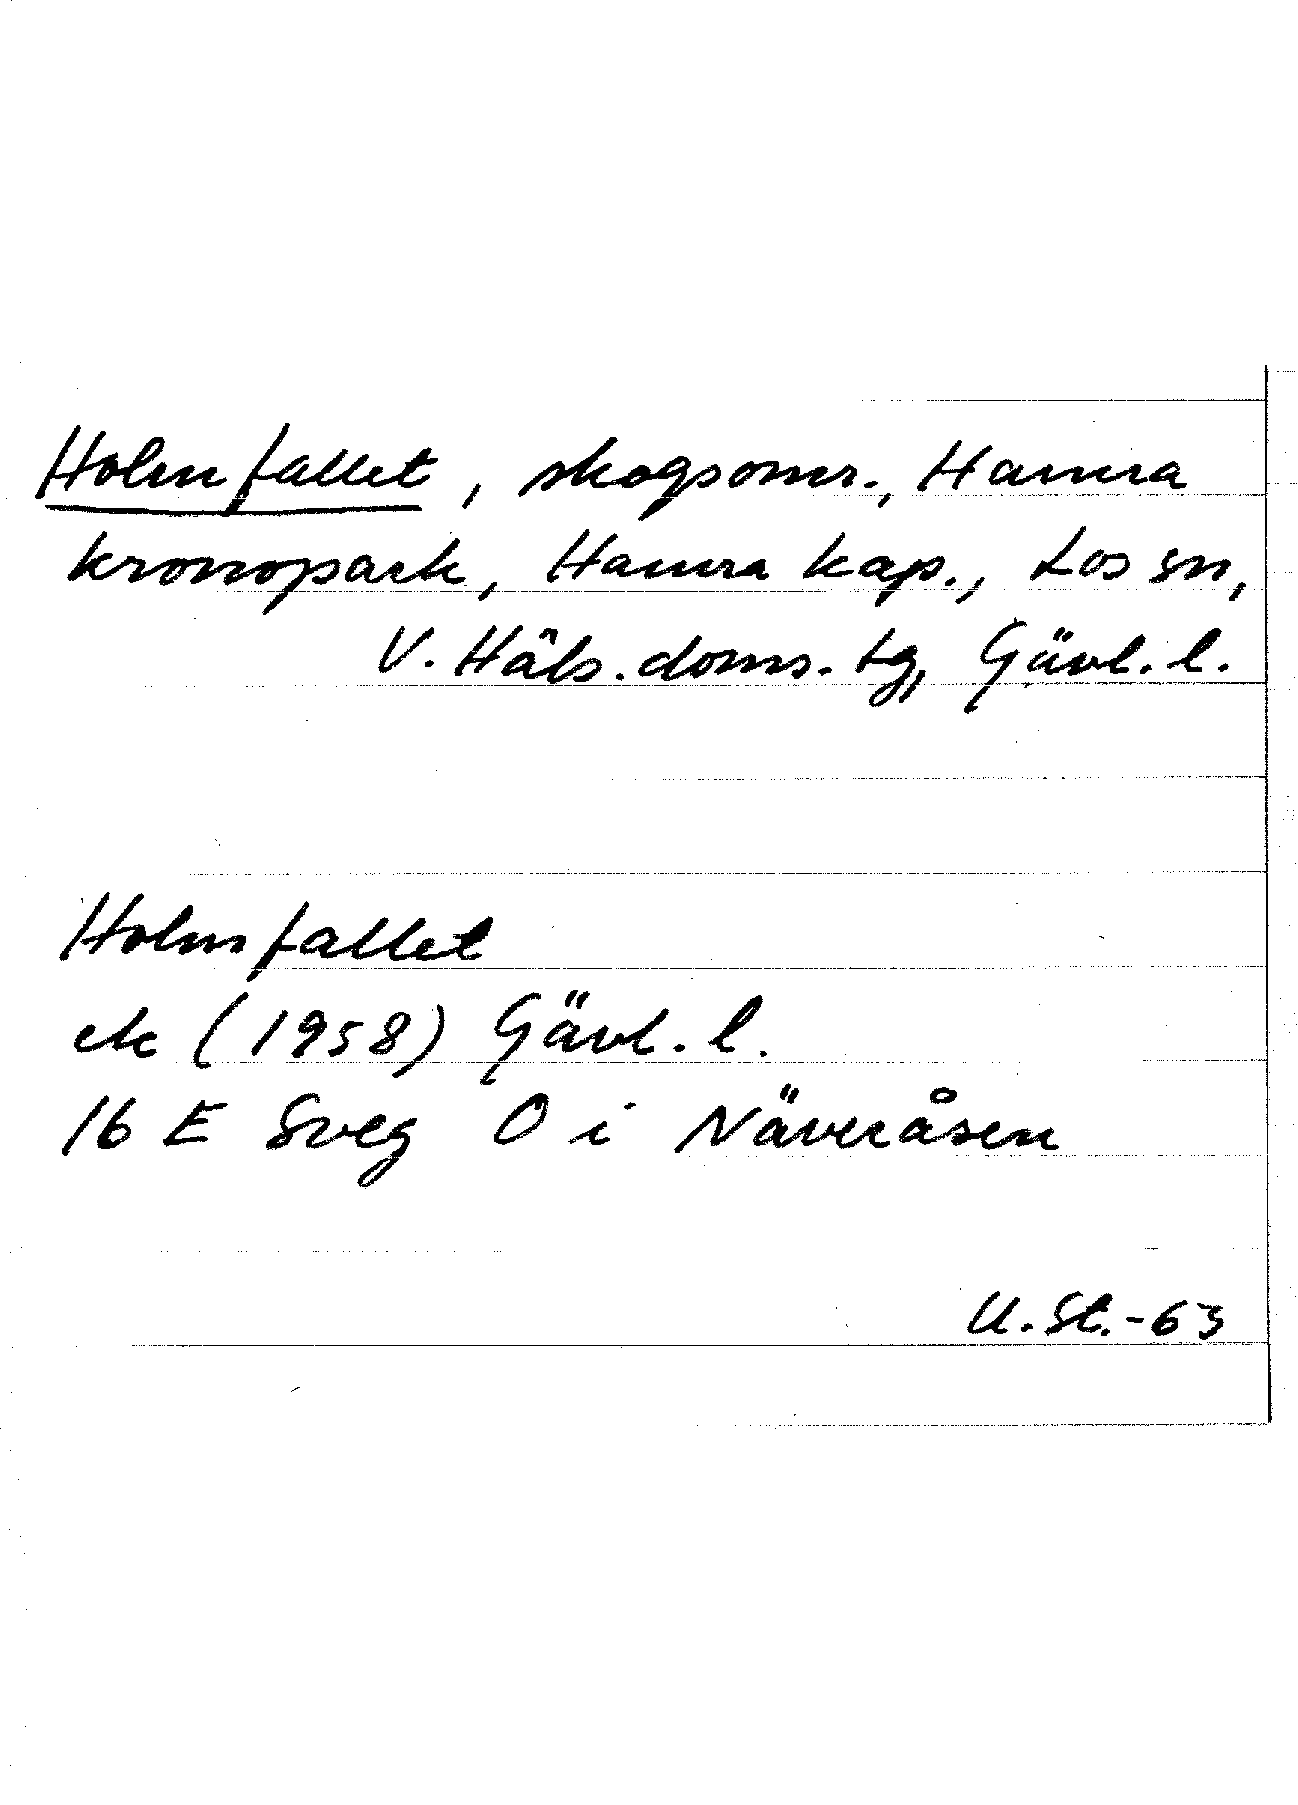 Holmfallet, skogsomr., Hamra
kronopark, Hamra kap., Los sn,
V. Häls. doms. tg, Gävl. l.
Holmfallet
ek (1958) Gävl. l.
16 E Sveg O i Näveråsen
U. St. -63